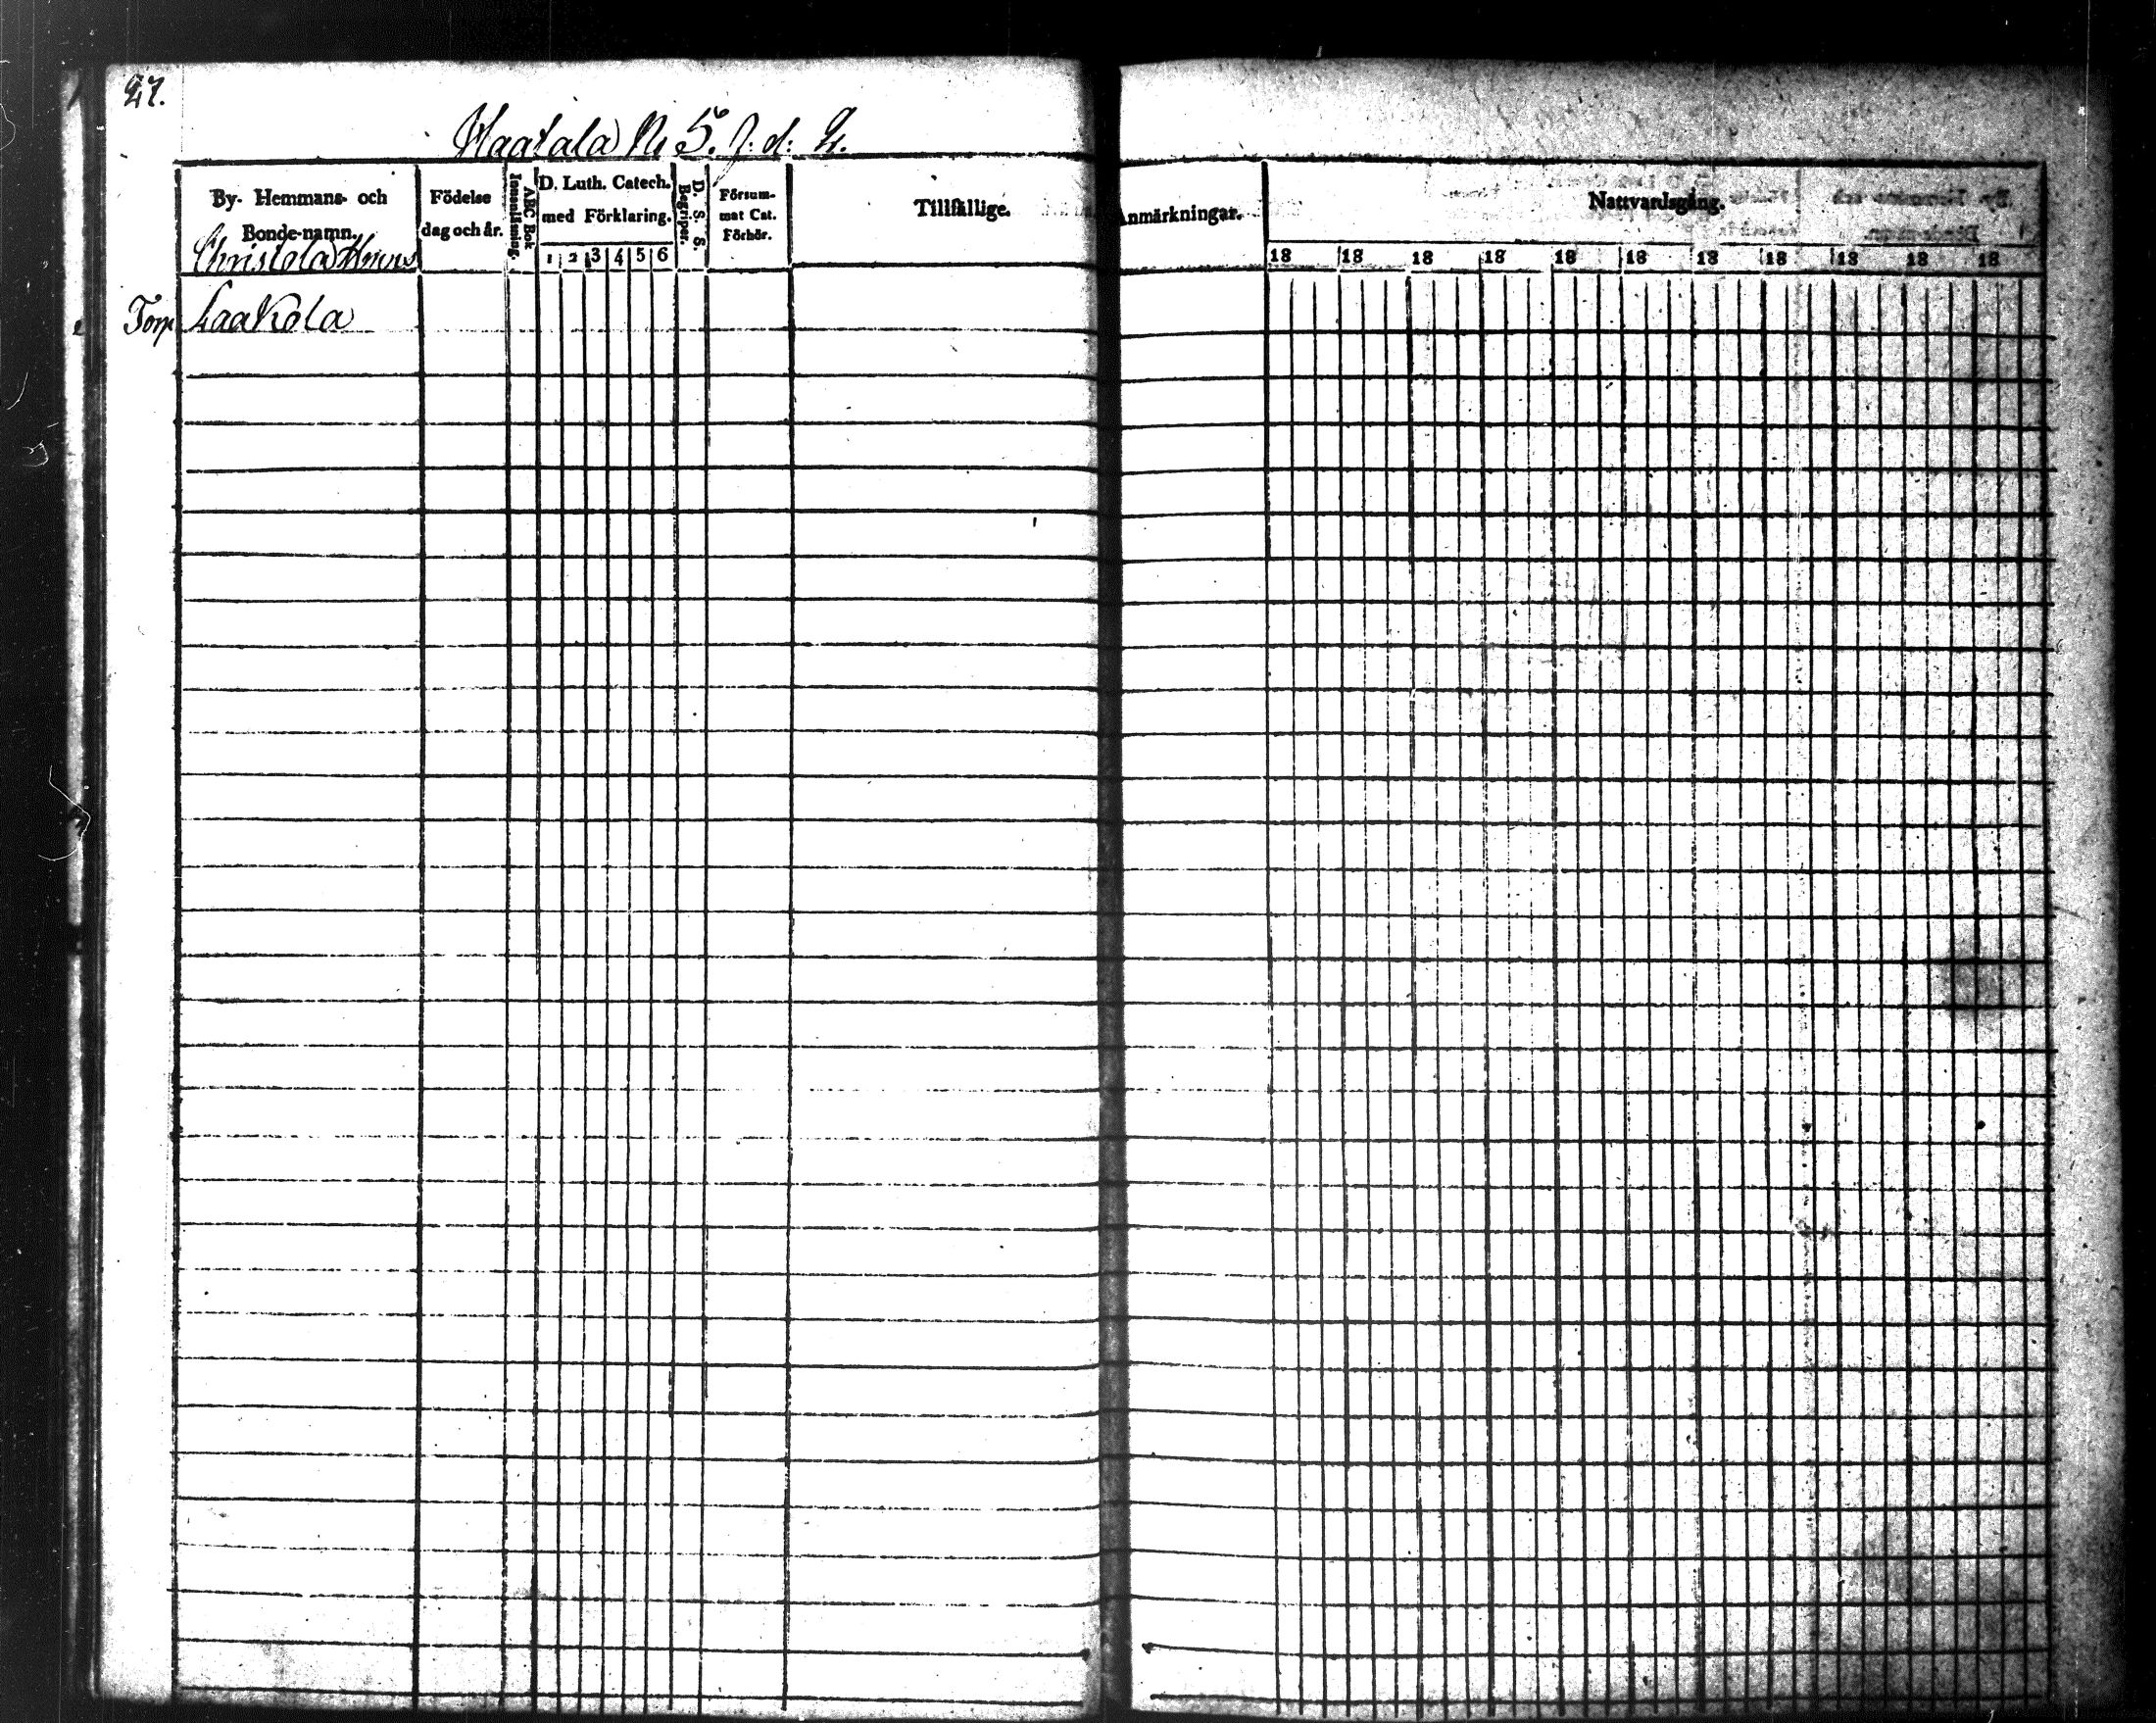 27.
Haatala N 5. J. d: 2.
By- Hemmans- och Bonde-namn.
Födelse dag och år.
ABC Bok Innanläsning.
D. Luth. Catech. med Förklaring.
1 2 3 4 5 6
D. S. S. Begriper.
Försum- mat Cat. Förhör.
Tillfällige.
Anmärkningar.
Nattvardsgång.
18 18 18 18 18 18 18 18 18 18 18
Christola Hmns
Torp Laakola